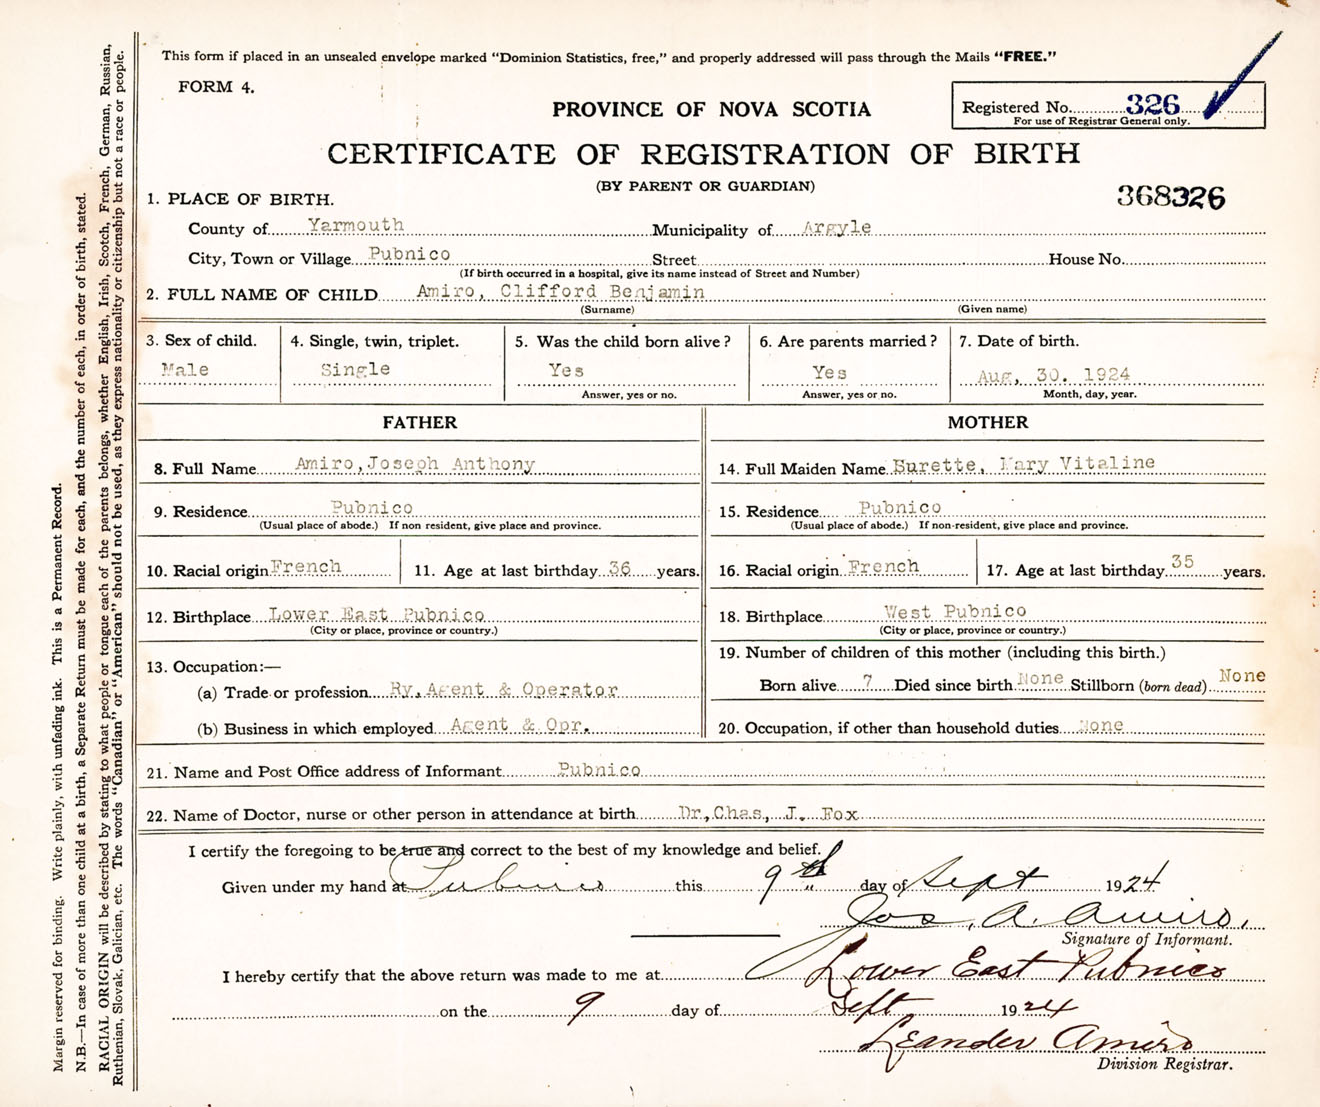 This form if placed in an unsealed envelope marked "Dominion Statistics, free," and properly addressed will pass through the Mails "FREE."
FORM 4.
PROVINCE OF NOVA SCOTIA
Registered No. 326
For use of Registrar General only.
CERTIFICATE OF REGISTRATION OF BIRTH
(BY PARENT OR GUARDIAN)
368326
1. PLACE OF BIRTH.
County of Yarmouth Municipality of Argyle
City, Town or Village Pubnico Street House No.
(If birth occurred in a hospital, give its name instead of Street and Number)
2. FULL NAME OF CHILD Amiro, Clifford Benjamin
(Surname) (Given name)
3. Sex of child. 4. Single, twin, triplet. 5. Was the child born alive? 6. Are parents married? 7. Date of birth.
Male Single Yes Yes Aug, 30. 1924
Answer, yes or no. Answer, yes or no. Month, day, year.
FATHER MOTHER
8. Full Name Amiro, Joseph Anthony 14. Full Maiden Name Surette, Mary Vitaline
9. Residence Pubnico 15. Residence Pubnico
(Usual place of abode.) If non resident, give place and province. (Usual place of abode.) If non-resident, give place and province.
10. Racial origin French 11. Age at last birthday 36 years. 16. Racial origin French 17. Age at last birthday 35 years.
12. Birthplace Lower East Pubnico 18. Birthplace West Pubnico
(City or place, province or country.) (City or place, province or country.)
13. Occupation:— 19. Number of children of this mother (including this birth.)
(a) Trade or profession Ry. Agent & Operator Born alive 7 Died since birth None Stillborn (born dead) None
(b) Business in which employed Agent & Opr. 20. Occupation, if other than household duties None
21. Name and Post Office address of Informant Pubnico
22. Name of Doctor, nurse or other person in attendance at birth Dr, Chas, J. Fox
I certify the foregoing to be true and correct to the best of my knowledge and belief.
Given under my hand at Pubnico this 9th day of Sept 1924
Jos, A. Amiro,
Signature of Informant.
I hereby certify that the above return was made to me at Lower East Pubnico
on the 9 day of Sept 1924
Leander Amiro
Division Registrar.
Margin reserved for binding. Write plainly, with unfading ink. This is a Permanent Record.
N.B.—In case of more than one child at a birth, a Separate Return must be made for each, and the number of each, in order of birth, stated.
RACIAL ORIGIN will be described by stating to what people or tongue each of the parents belongs, whether English, Irish, Scotch, French, German, Russian,
Ruthenian, Slovak, Galician, etc. The words "Canadian" or "American" should not be used, as they express nationality or citizenship but not a race or people.